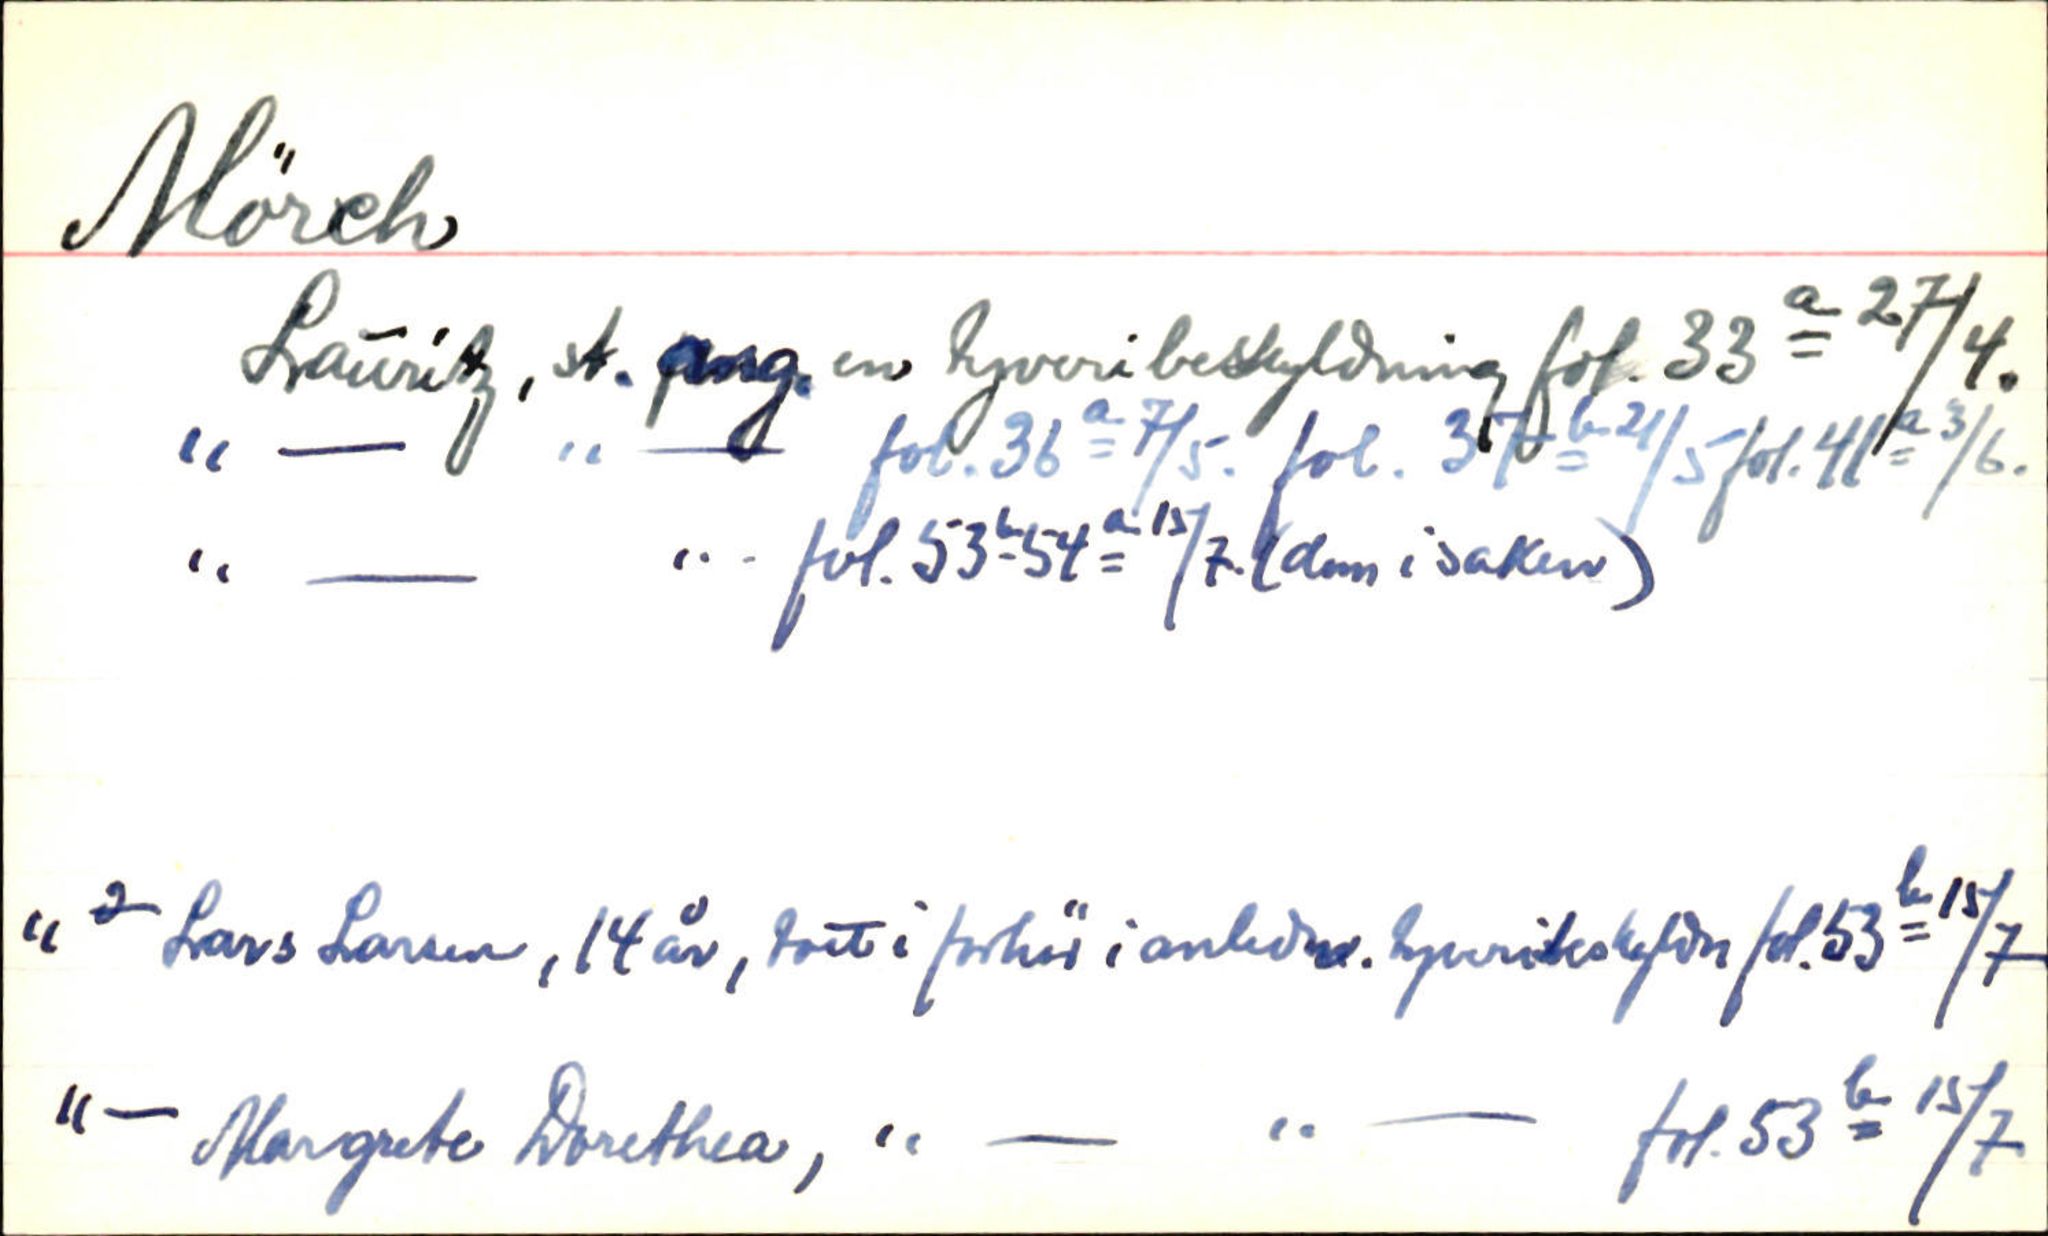 Mörch
Lauritz, st. ang. en tyveribeskyldning fol. 33 a 27/4.
" — " — fol. 36 a 7/5. fol. 37 b 21/5 fol. 41 a 3/6.
" — " - fol. 53 b - 54 a 15/7. (dom i saken)
" — Lars Larsen, 14 år, tatt i forhör i anledn. tyveribeskyldn fol. 53 b 15/7
" — Margrete Dorethea, " — " — fol. 53 b 15/7